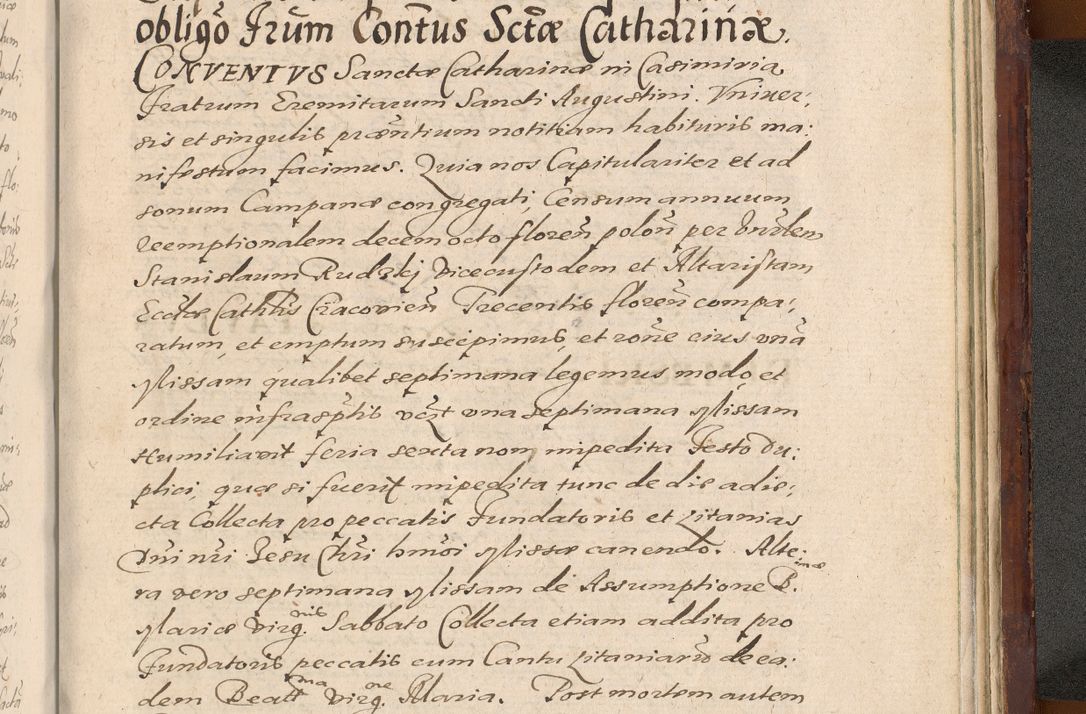 obligõ Frũm Conttus Sctæ Catharinæ.
CONVENTVS Sanctæ Catharinæ in Casimiria,
Fratrum Eremitarum Sancti Augustini. Vniver,
sis et singulis præntium notitiam habituris ma:
nifestum facimus. Quia nos Capitulariter et ad
sonum Campanæ congregati, Censum annuum
reemptionalem decem octo floreñ poloñ per
Stanislaum Rudzkj Vicecustodem et Altaristam
Ecclæ Cathlis Cracovieñ Trecentis floreñ compa,
ratum, et emptum suscepimus, et roñe eius vnã
Missam qualibet septimana legemus modo et
ordine infrasptis vczt vna septimana Missam
Humiliavit feria sexta non impedita Festo Du:
plici, quæ si fuerit impedita tunc de die adie,
cta Collecta pro peccatis Fundatoris et Litanias
Dñi nři Jesu Chři hmõi Missæ canendo. Alte:
ra vero septimana Missam de Assumptione B. mæ
Mariæ Virg. nis Sabbato Collecta etiam addita pro
Fundatoris peccatis cum Cantu Litaniarũ de ea:
dem Beatt ma Virg. ne Maria. Post mortem autem